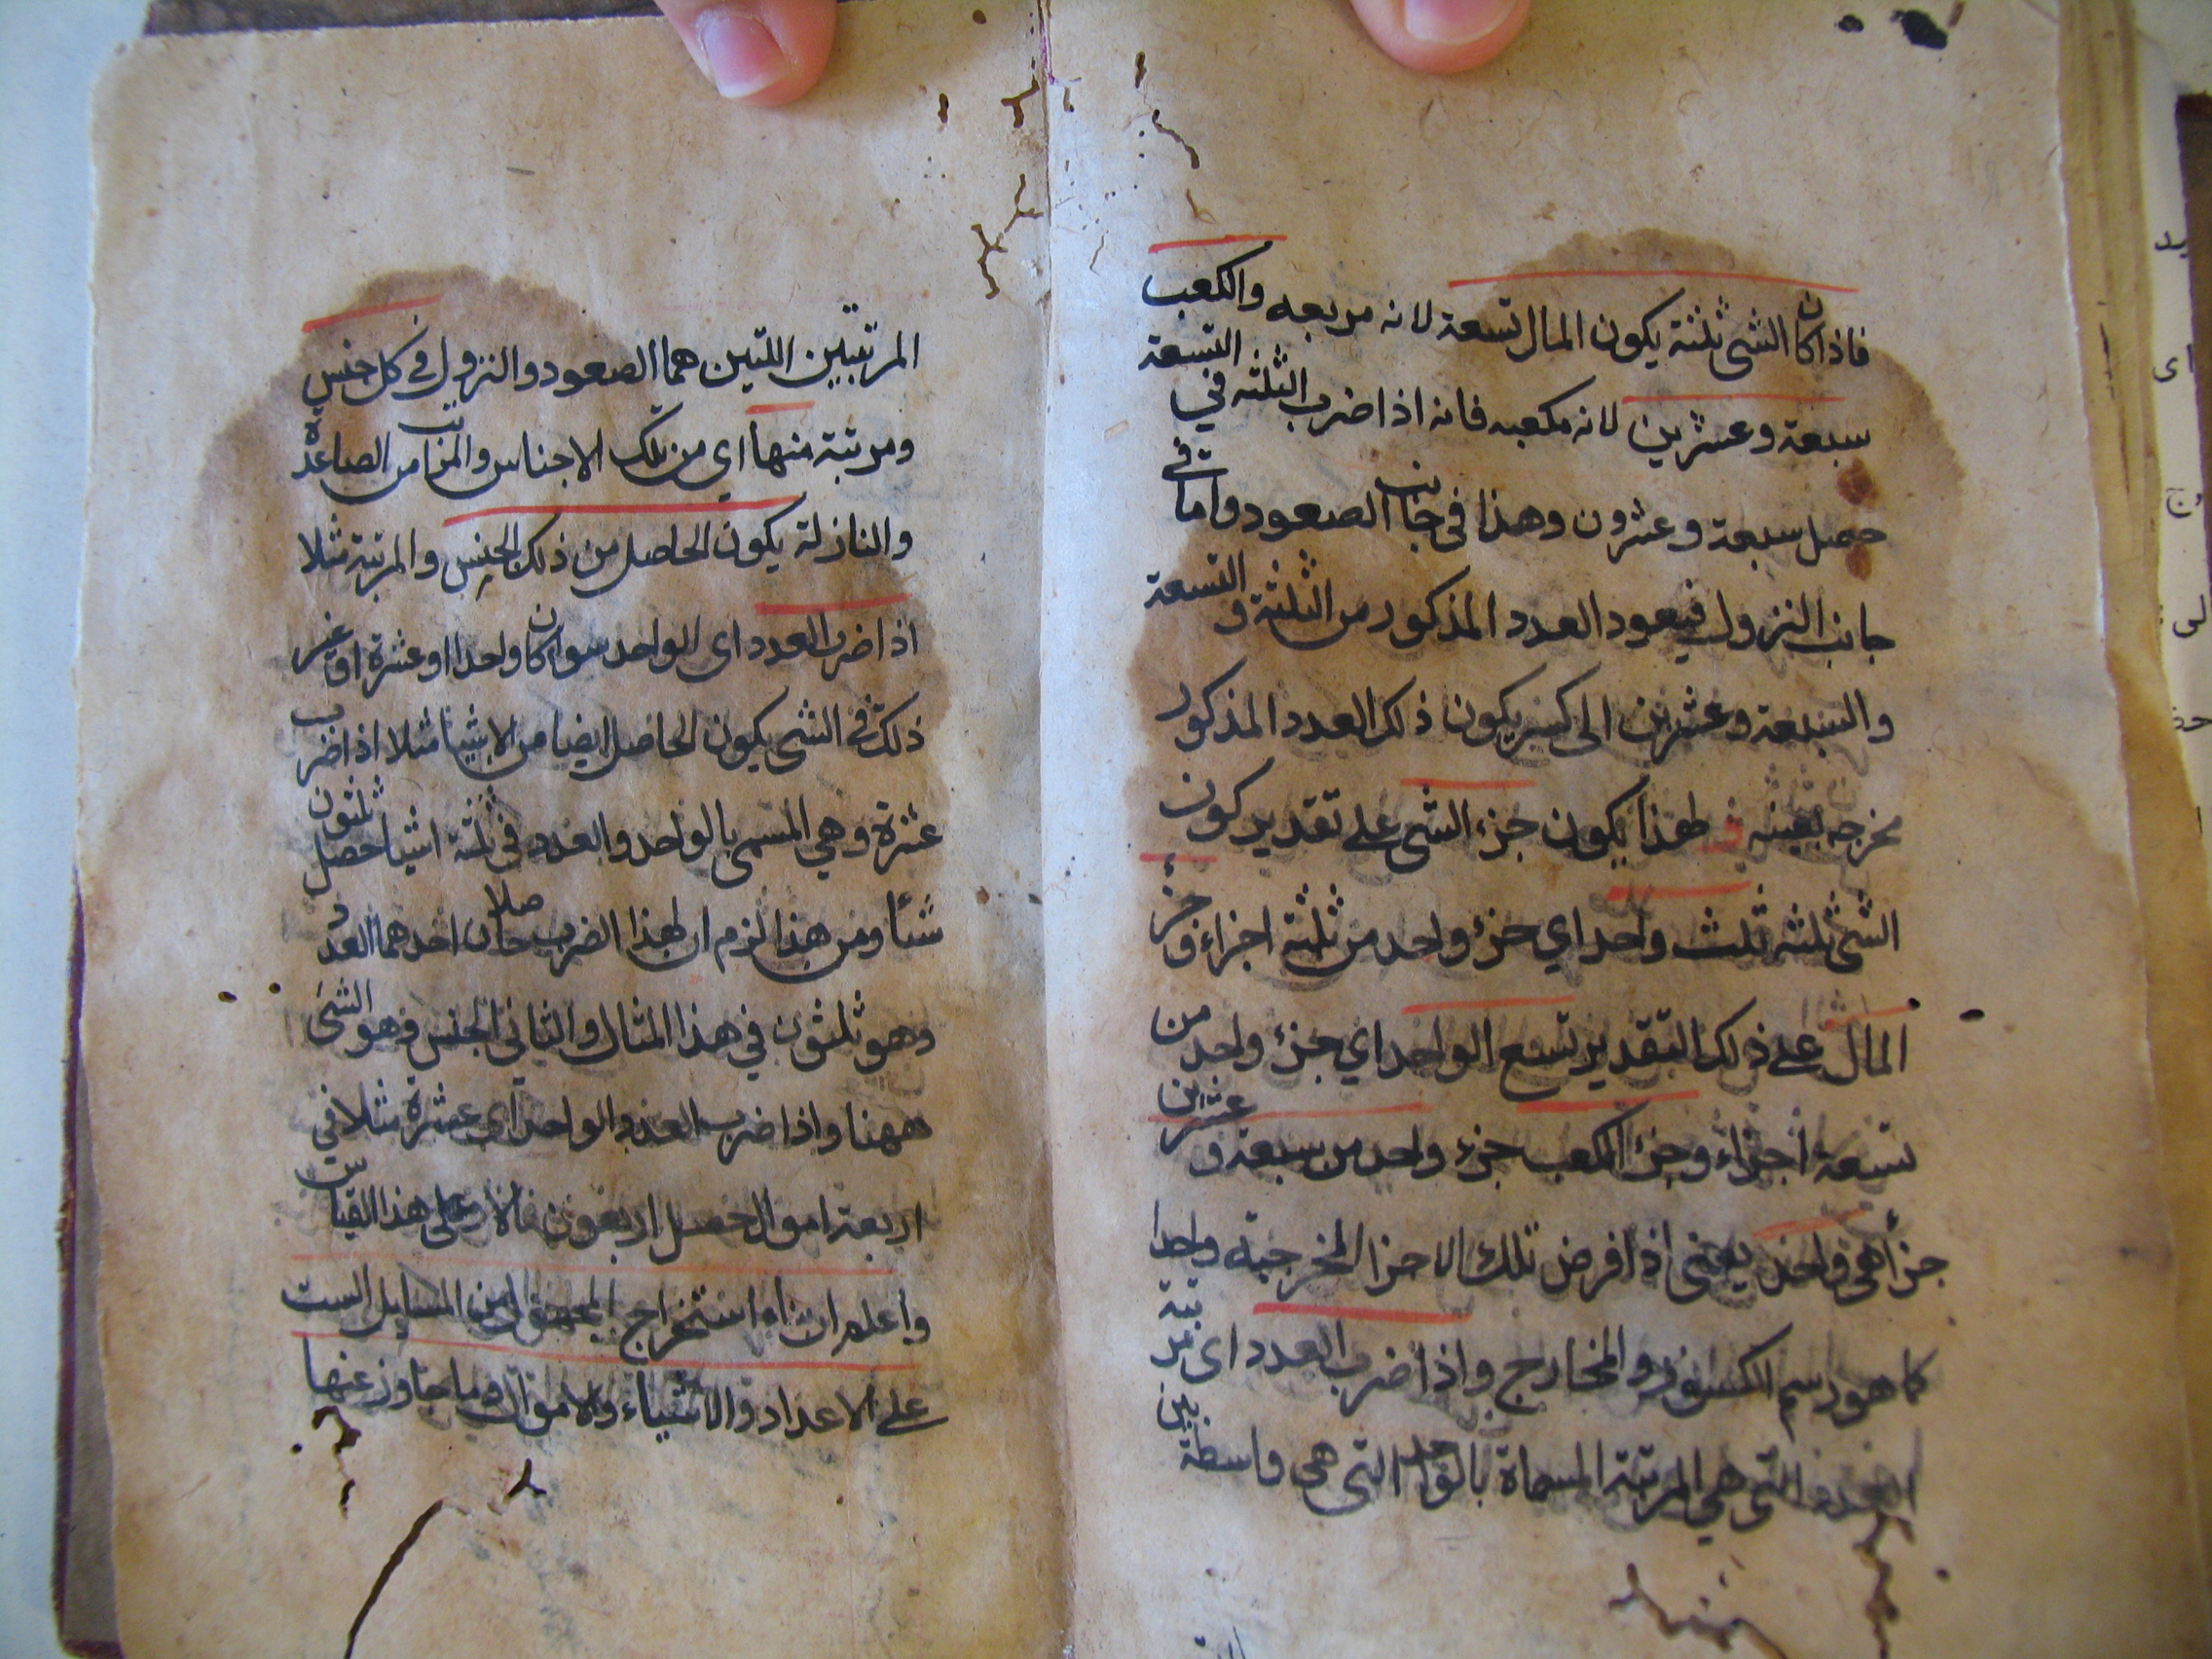 فاذا كان الشئ ثلثة يكون المال تسعة لانه مربعه والكعب
سبعة وعشرين لانه مكعبه فانه اذا ضرب الثلثة في التسعة
حصل سبعة وعشرون وهذا في جانب الصعود واما في
جانب النزول فيعود العدد المذكور من الثلثة والتسعة
والسبعة وعشرين الى كسر يكون ذلك العدد المذكور
مخرجه بعينه فلهذا يكون جزء الشئ على تقدير كون
الشئ ثلثة ثلث واحد اي جزؤ واحد من ثلثة اجزاء وجزء
المال على ذلك التقدير تسع الواحد اي جزؤ واحد من
تسعة اجزاء وجزؤ الكعب جزء واحد من سبعة وعشرين
جزأ هي واحد يعني اذا فرض تلك الاجزا المخرجية واحدا
كما هو رسم الكسور والمخارج واذا ضرب العدد اي مرتبة
العدد التي هي المرتبة المسماة بالواحد التي هي واسطة بين
المرتبتين اللتين هما الصعود والنزول في كل جنس
ومرتبة منها اي من تلك الاجناس والمراتب من الصاعدة
والنازلة يكون الحاصل من ذلك الجنس والمرتبة مثلا
اذا ضرب العدد اى الواحد سوا كان واحدا او عشرة او غير
ذلك في الشئ يكون الحاصل ايضا من الاشيا مثلا اذا ضرب
عشرة وهي المسمى بالواحد والعدد في ثلثة اشيا حصل ثلثون
شئا ومن هذا لزم ان لهذا الضرب حاصلان احدهما العدد
وهو ثلثون في هذا المثال والثاني الجنس وهو الشئ
ههنا واذا ضرب العدد والواحد اي عشرة مثلا في
اربعة اموال حصل اربعون مالا وعلى هذا القياس
واعلم ان استخراج المجهول من المسايل الست
على الاعداد والاشياء والاموال وما جاوز عنها